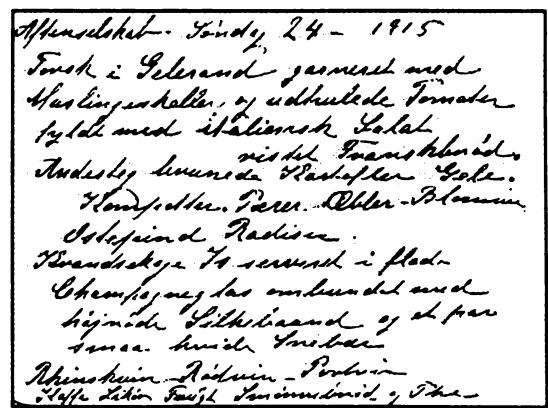 Aftenselskab. Søndag 24 – 1915
Torsk i Gelerand garneret med
Muslingeskaller, og udhulede Tomater
fyldt med italiensk Salat
ristet Franskbrød.
Andesteg brunede Kartofler Gele.
Kompotter. Pærer. Æbler – Blommer
Ostepind Radiser.
Kransekage Is serveret i flade
Champagneglas ombundet med
højrøde Silkebaand og et par
smaa hvide
Rhinskvin – Rødvin – Portvin
Kaffe Likør Frugt Smørrebrød og The –